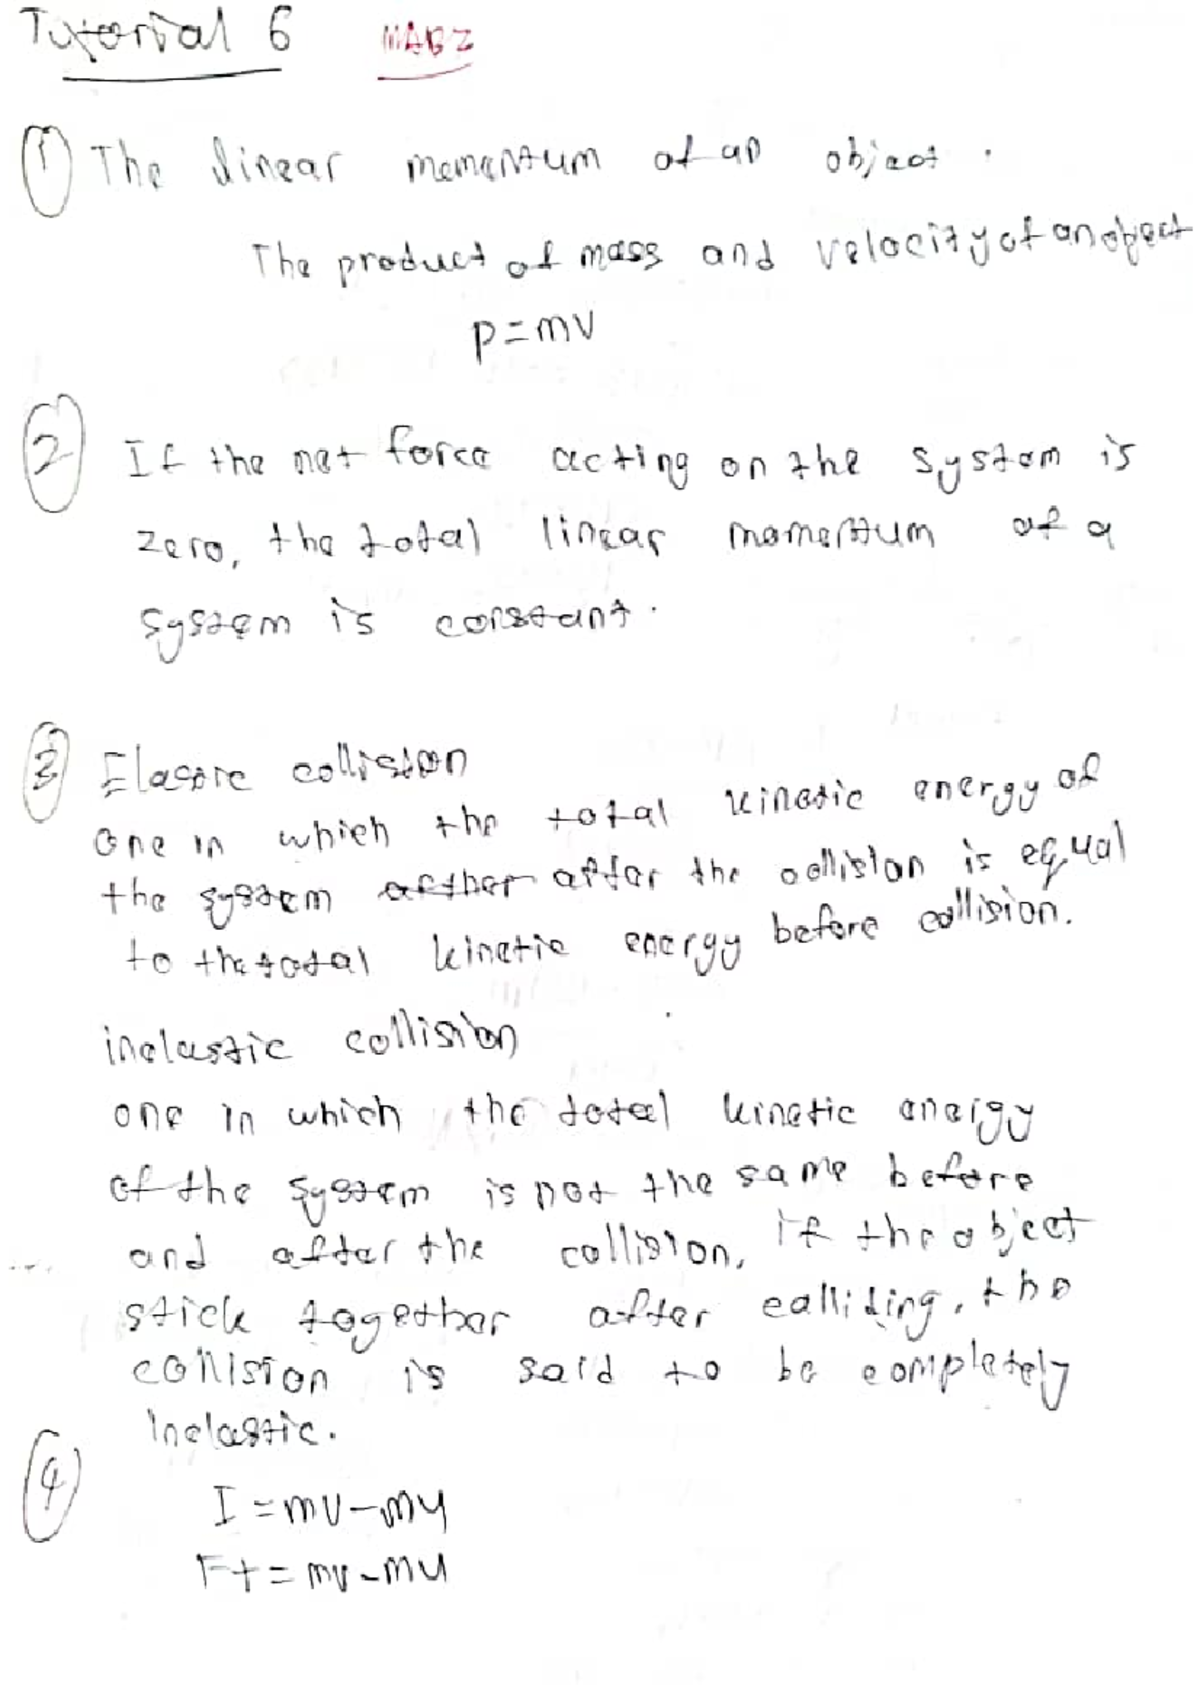 Tutorial 6 MABZ
① The linear momentum of an object.
The product of mass and velocity of an object
p=mv
② If the net force acting on the system is
zero, the total linear momentum of a
system is constant.
③ Elastic collision
One in which the total kinetic energy of
the system after the collision is equal
to the total kinetic energy before collision.
inelastic collision
one in which the total kinetic energy
of the system is not the same before
and after the collision, if the object
stick together after colliding, the
collision is said to be completely
inelastic.
④
I = mv-mu
Ft = mv-mu